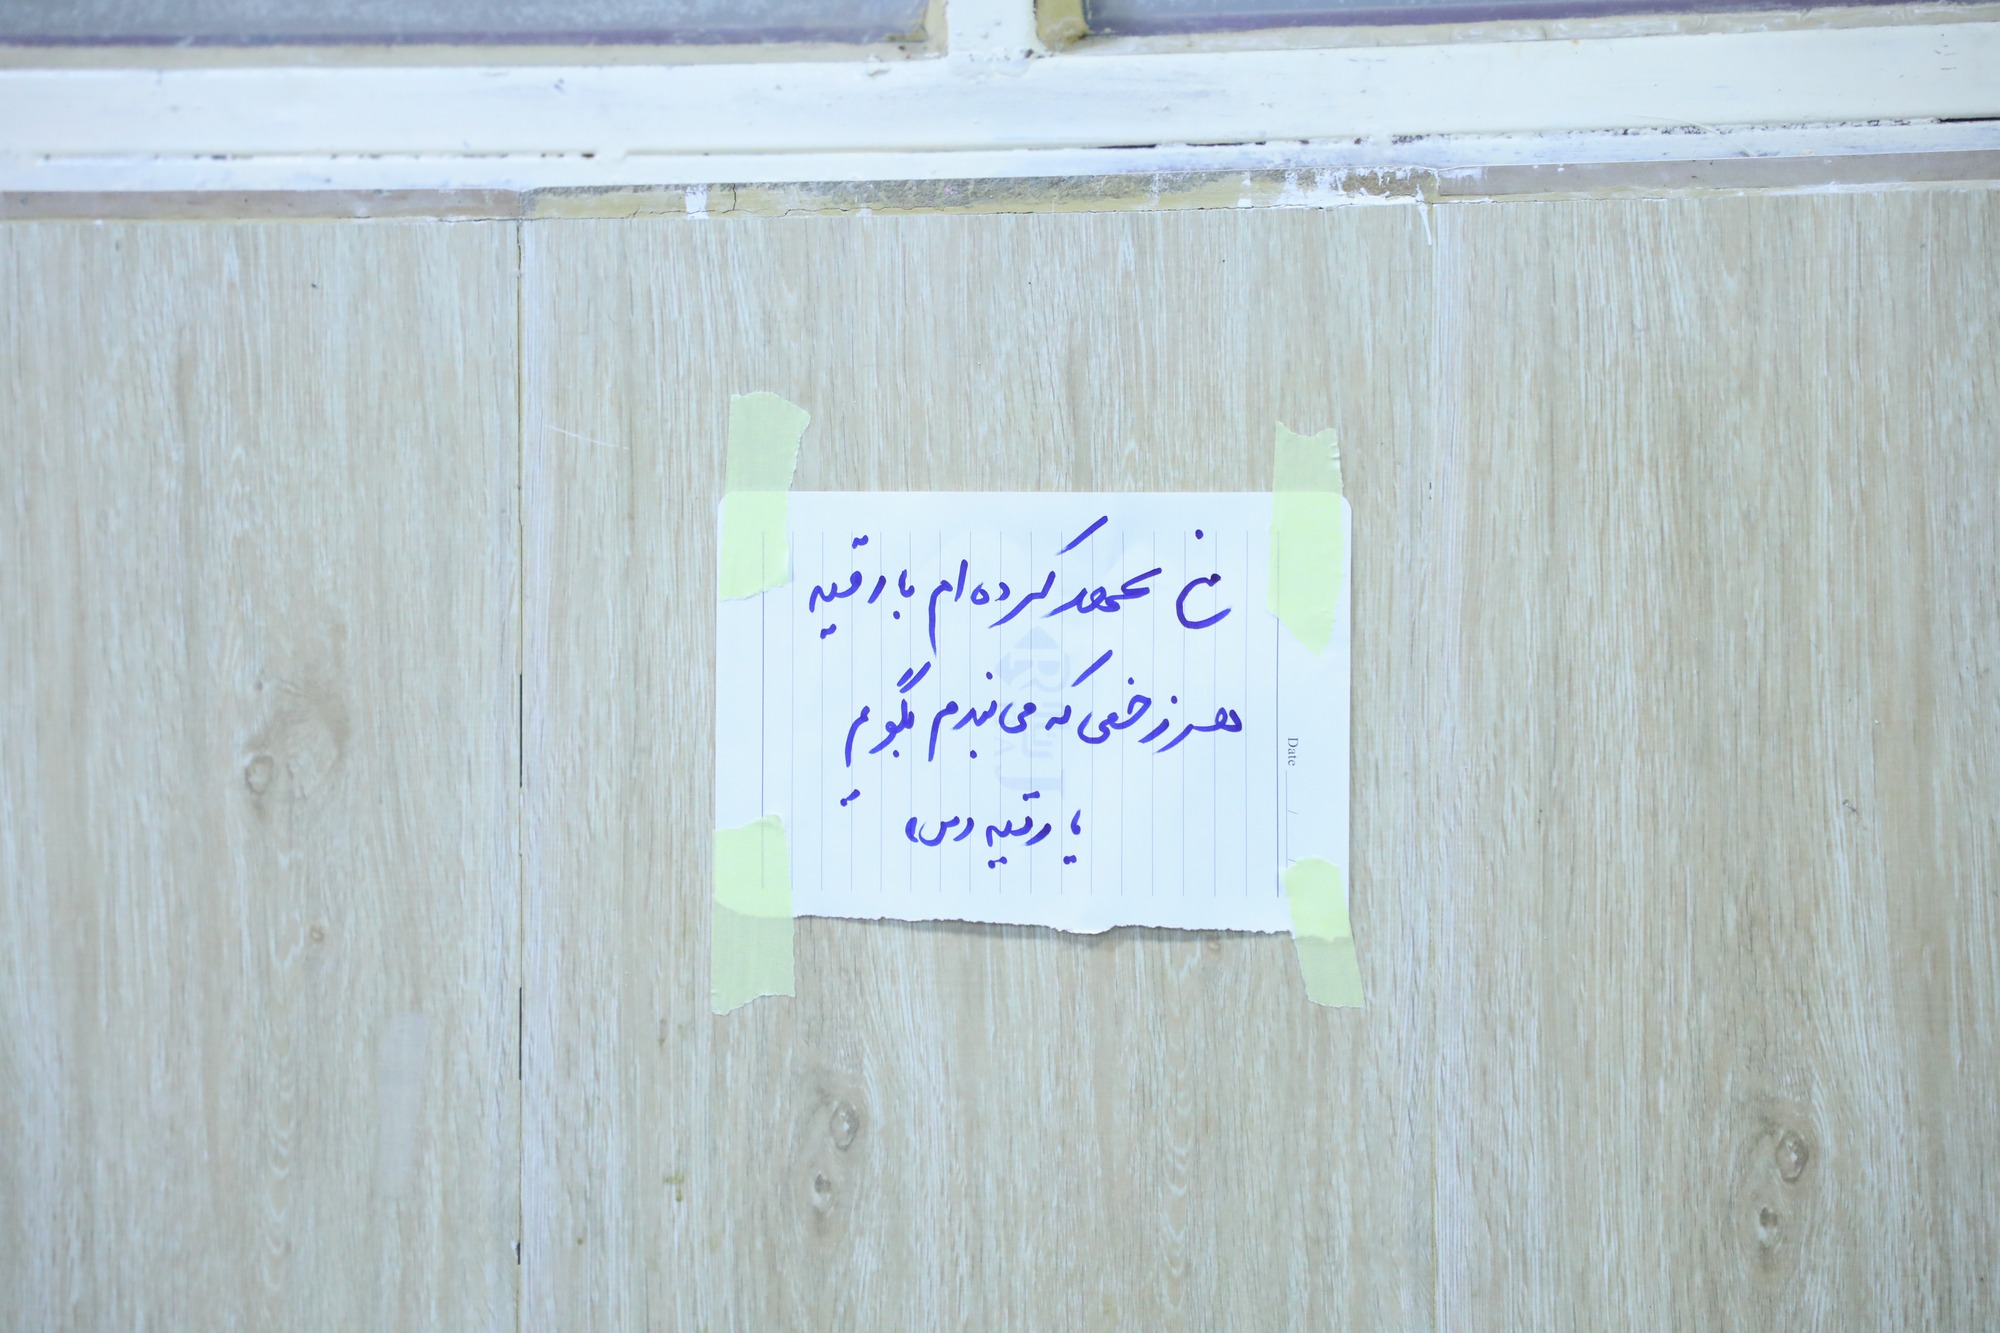 من عهد کرده ام با رقیه
هر زخمی که می بندم بگویم
یا رقیه (س)
Date / /